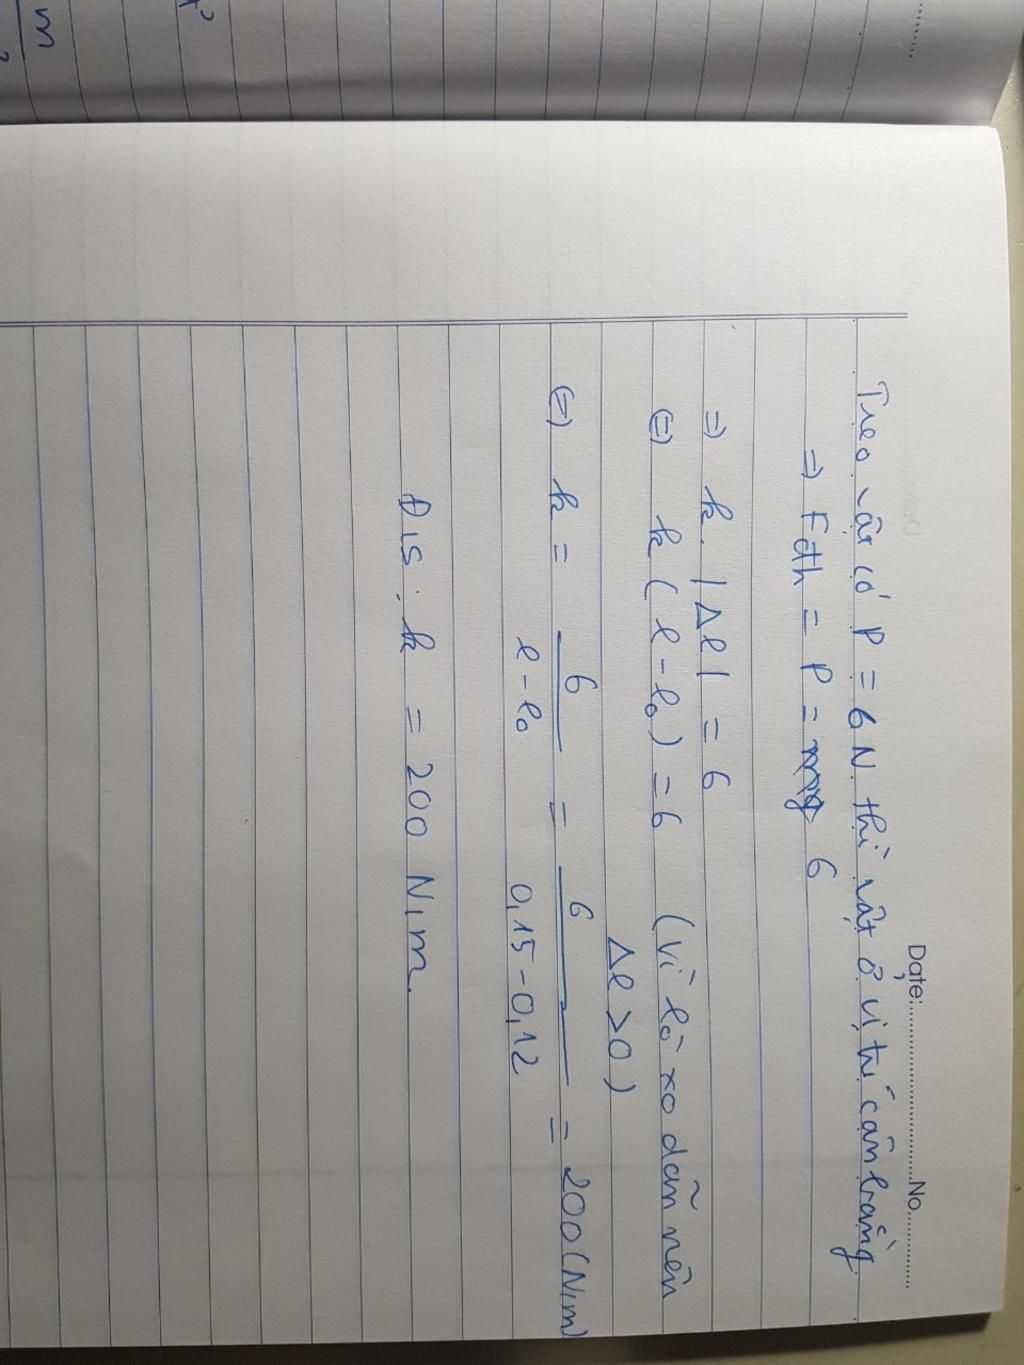 Date:....................No.............
Treo vật có P = 6N thì vật ở vị trí cân bằng
=> Fđh = P = mg 6
=> k. |Δl| = 6
<=> k(l - l₀) = 6 (Vì lò xo dãn nên
Δl > 0)
<=> k = 6/(l - l₀) = 6/(0,15 - 0,12) = 200(N/m)
Đ/s: k = 200 N/m.
m